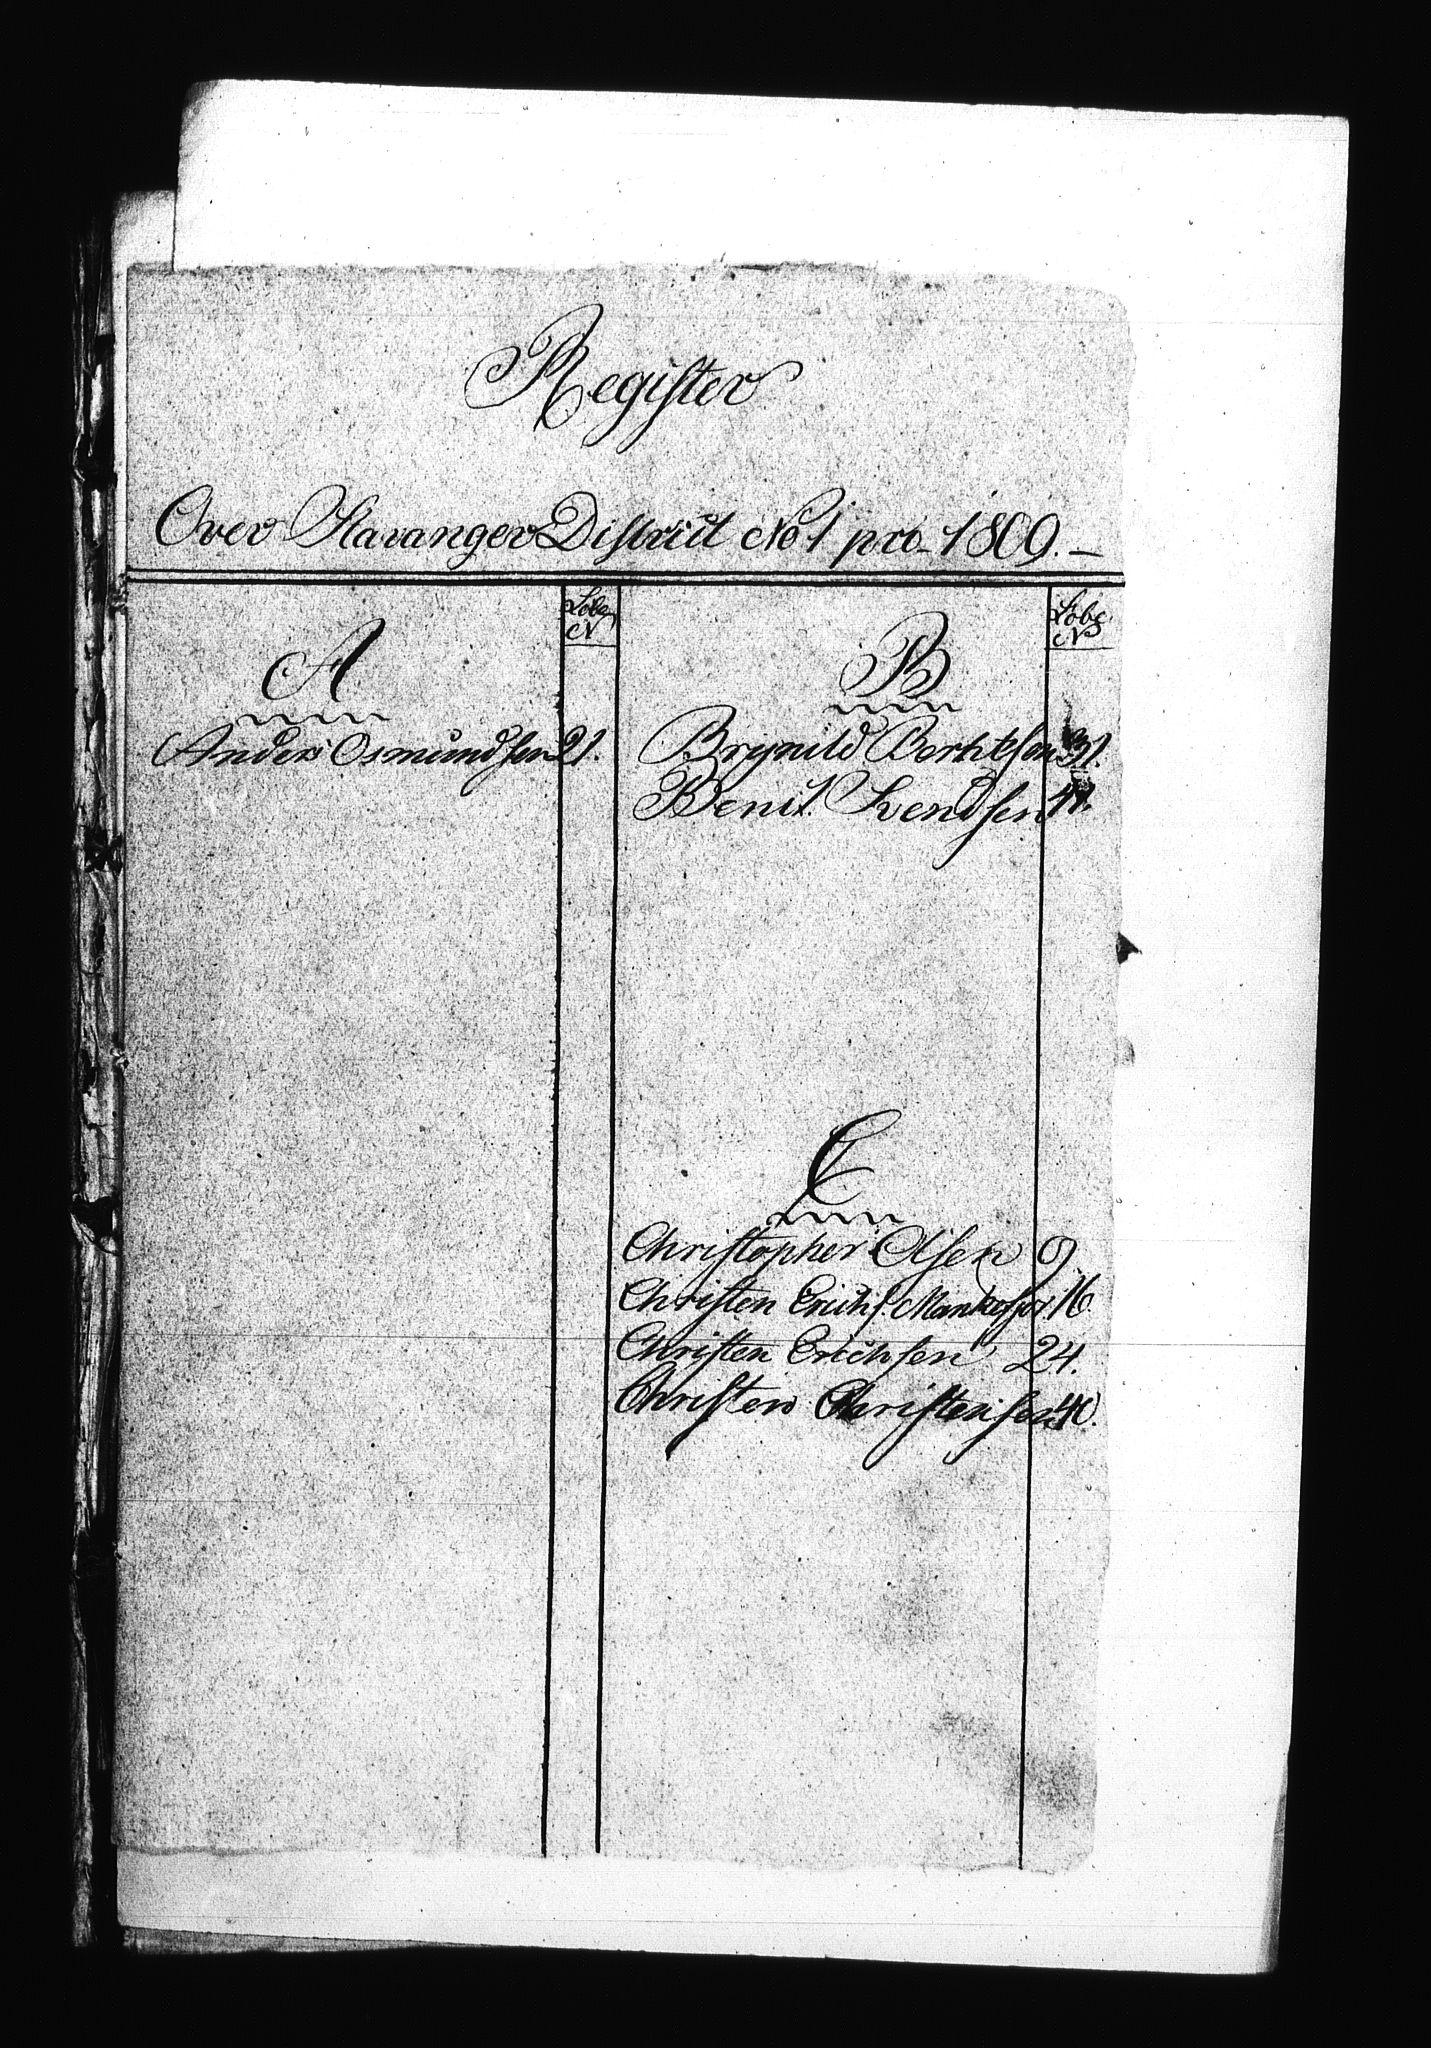 Register
Over Stavanger District No 1 pro 1809.
Løbe
N
A
Anders Osmundsen 21.
Løbe
N
B
Brynild Berhtsen 31.
Benit. Svendsen 41.
C
Christopher Olsen 9
Christen Erichs. 16
Christen Erichsen 24.
Christen Christensen 40.